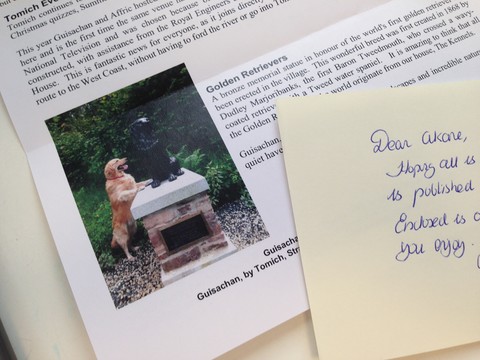 Tomich Eve
Tomich continues
Christmas quizzes, Summ
This year Guisachan and Affric host
here and is the first time the same venue h
National Television and was chosen because o
constructed, with assistance from the Royal Engineers
House. This is fantastic news for everyone, as it joins directly
route to the West Coast, without having to ford the river or go into Tom
Golden Retrievers
A bronze memorial statue in honour of the world's first golden retriever
been erected in the village. This wonderful breed was first created in 1868 by
Dudley Marjoribanks, the first Baron Tweedmouth, who crossed a wavy-
coated retriever with a Tweed water spaniel. It is amazing to think that all
the Golden R world originate from our house, The Kennels.
Guisachan, scapes and incredible nature
quiet have
Guisacha
Guisachan, by Tomich, Str
Dear Akane,
Hoping all is
is published
Enclosed is a
you enjoy.